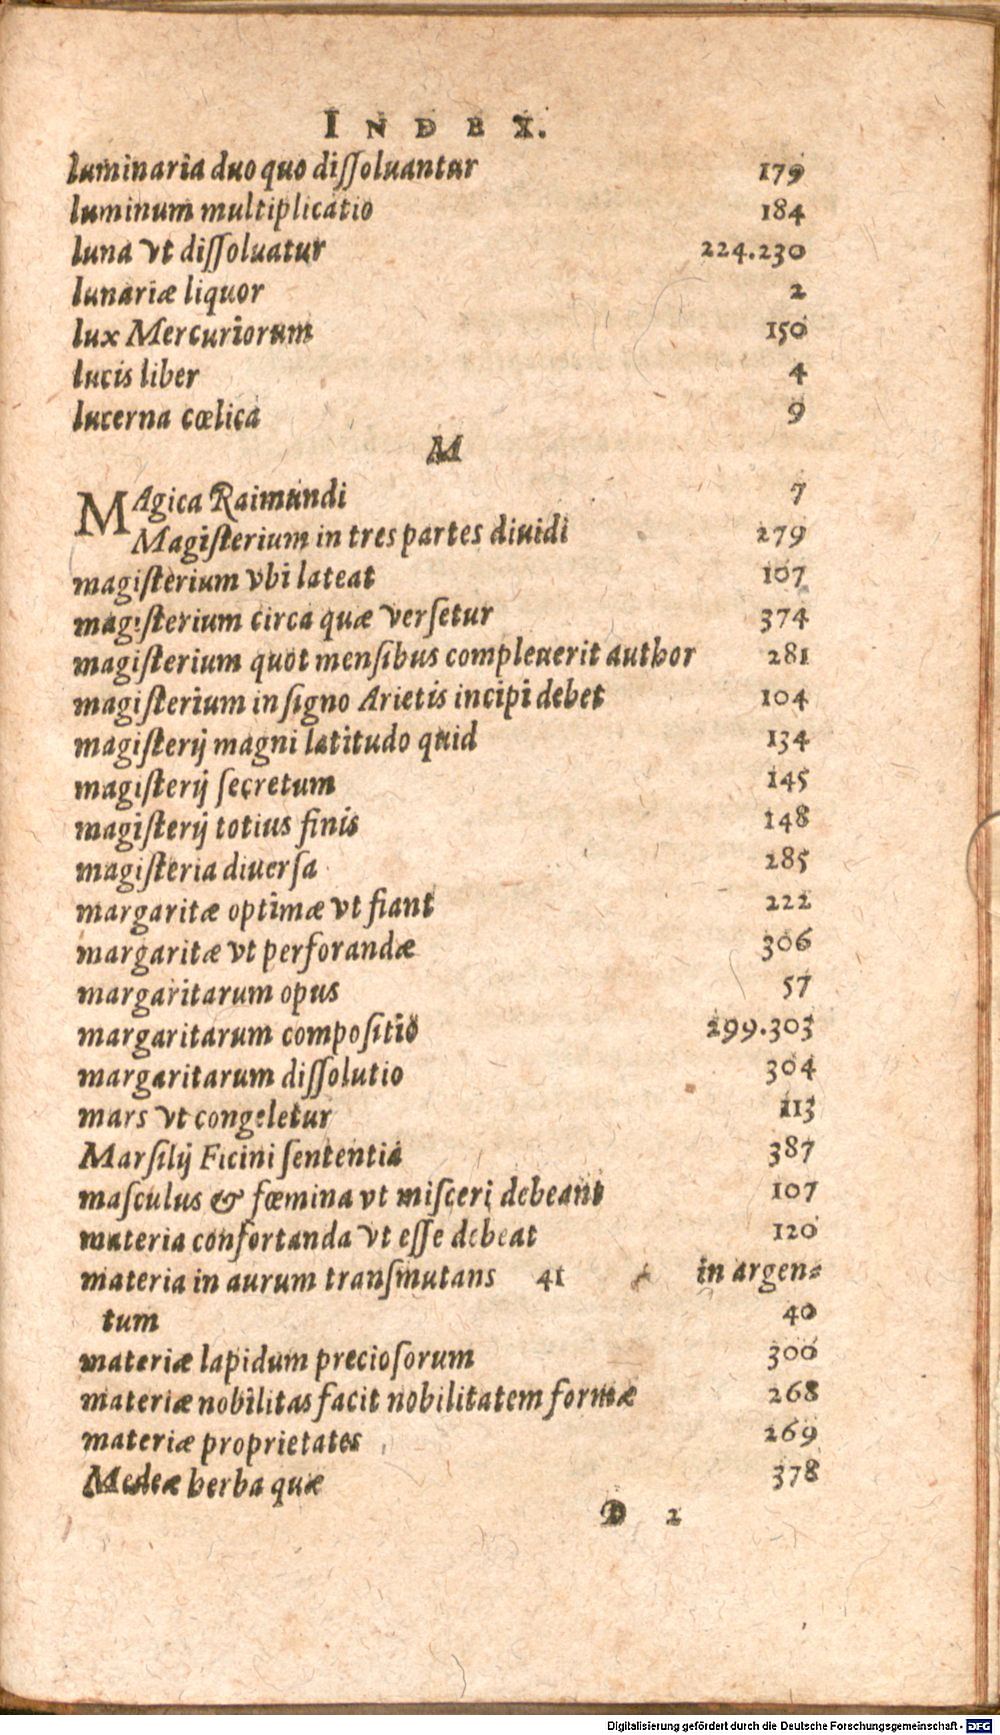 INDEX.
luminaria duo quo diſſoluantur 179
luminum multiplicatio 184
luna vt diſſoluatur 224.230
lunariæ liquor 2
lux Mercuriorum 150
lucis liber 4
lucerna cœlica 9
M
MAgica Raimundi 7
Magiſterium in tres partes diuidi 279
magiſterium vbi lateat 107
magiſterium circa quæ verſetur 374
magiſterium quot menſibus compleuerit author 281
magiſterium in ſigno Arietis incipi debet 104
magiſterij magni latitudo quid 134
magiſterij ſecretum 145
magiſterij totius finis 148
magiſteria diuerſa 285
margaritæ optimæ vt fiant 222
margaritæ vt perforandæ 306
margaritarum opus 57
margaritarum compoſitio 299.303
margaritarum diſſolutio 304
mars vt congeletur 113
Marſilij Ficini ſententia 387
maſculus & fœmina vt miſceri debeant 107
materia confortanda vt eſſe debeat 120
materia in aurum tranſmutans 41 in argen-
tum 40
materiæ lapidum precioſorum 300
materiæ nobilitas facit nobilitatem formæ 268
materiæ proprietates 269
Medeæ herba quæ 378
D 2
Digitalisierung gefördert durch die Deutsche Forschungsgemeinschaft - DFG